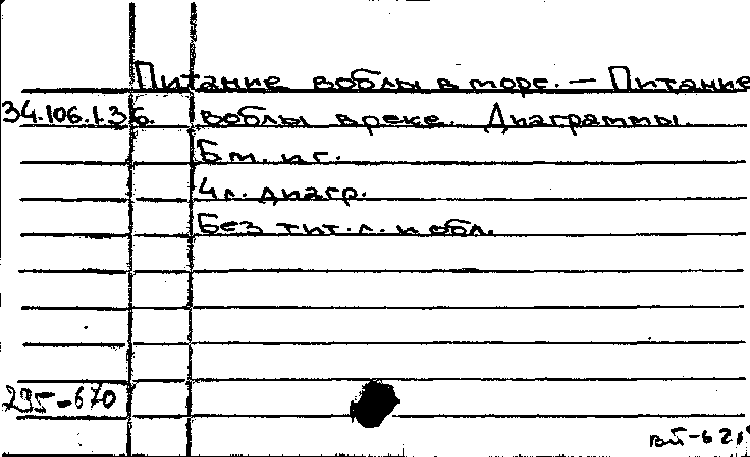 Питание воблы в море. — Питание
34.106.1.36. воблы в реке. Диаграммы.
Б м. и г.
4 л. диагр.
Без тит. л. и обл.
295-670